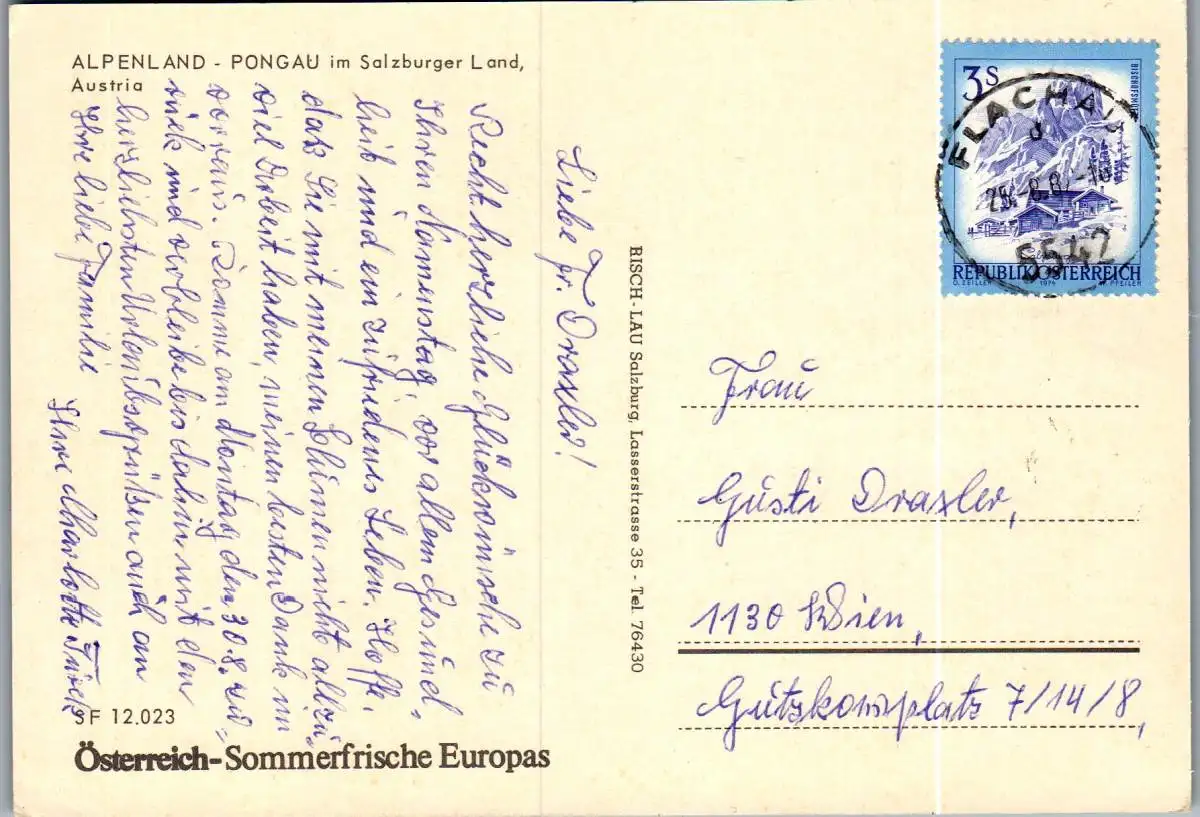 ALPENLAND - PONGAU im Salzburger Land,
Austria
Liebe Fr. Draxler!
Recht herzliche Glückwünsche zu
Ihren Namenstag, vor allem Gesund-
heit und ein zufriedenes Leben. Hoffe,
daß Sie mit meinen Blumen nicht allzu
viel Arbeit haben, meinen besten Dank im
voraus. Komme am Montag den 30.8. zu-
rück und verbleibe bis dahin mit den
herzlichsten Urlaubsgrüßen auch an
Ihre liebe Familie
Ihre Charlotte
SF 12.023
Österreich-Sommerfrische Europas
RISCH-LAU Salzburg, Lasserstrasse 35 - Tel. 76430
3 S
BISCHOFSMÜTZE
REPUBLIK ÖSTERREICH
O. ZEILER 1974 W. PFEILER
FLACHAU
5542
Frau
Gusti Draxler,
1130 Wien,
Gutzkowplatz 7/14/8,